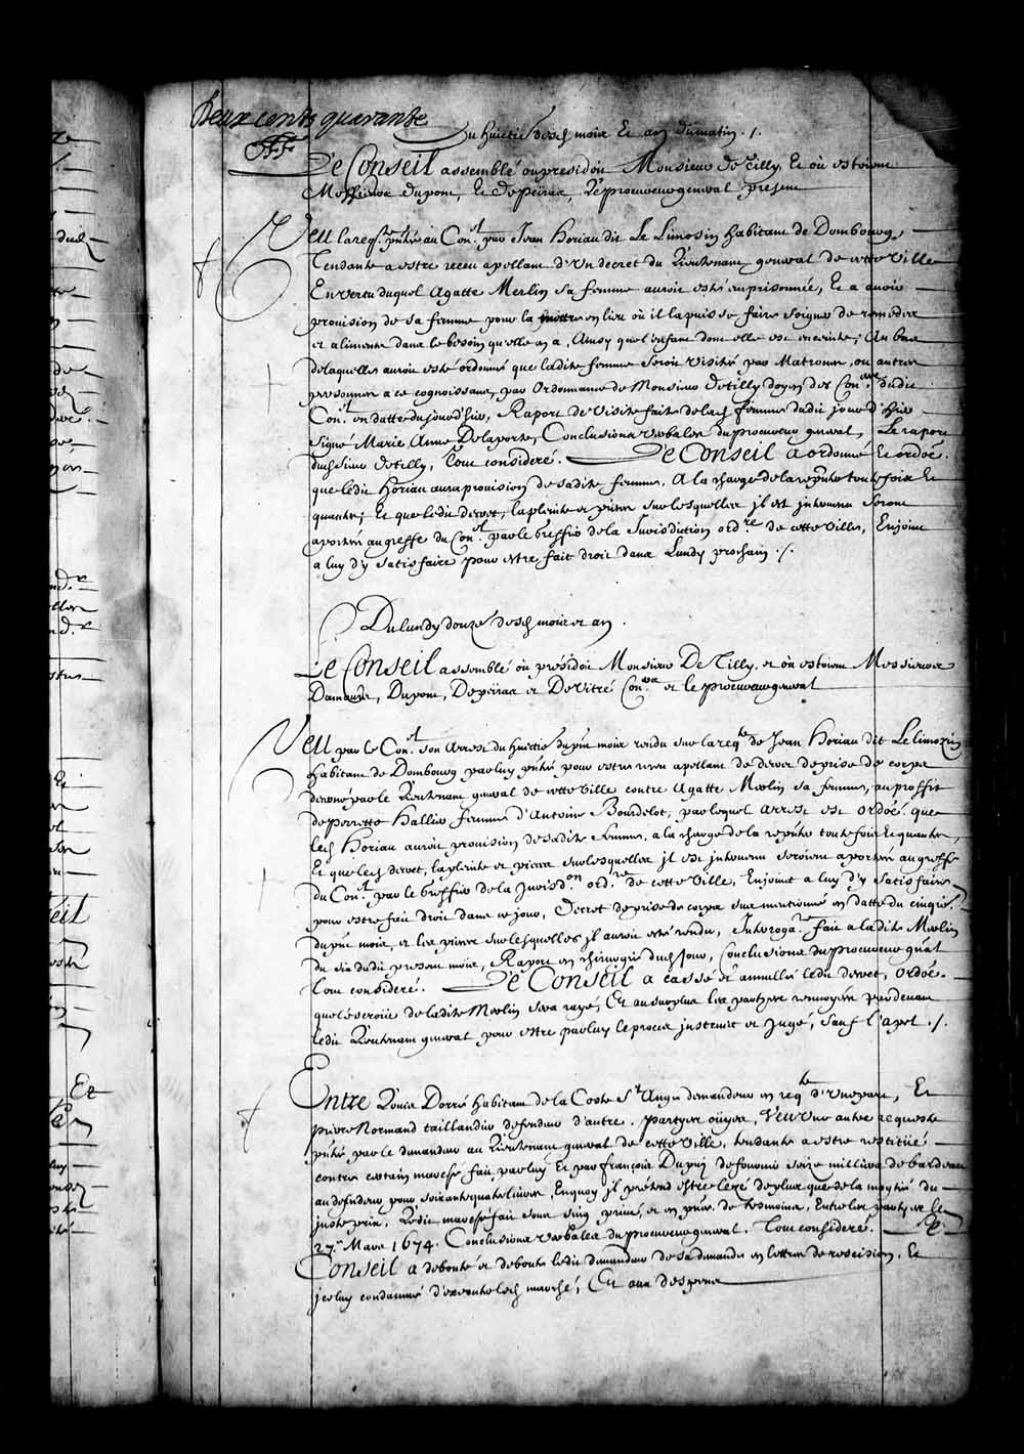 Deux cents quarante
Du huictie desd. mois et an du matin ./.
Le Conseil assemblé ou presidoit Monsieur de Tilly, Et où estoient
Messieurs dupont, Et depeiras, Le procureur general present
Veu la reqte. pntée au Conl. par Jean Horiau dit Le Limosin habitant de Dombourg,
Tendante a estre receu apellant d'un decret du Lieutenant general de cette Ville
En vertu duquel Agatte Merlin sa femme auroit esté emprisonnée, Et a avoir
provision de sa femme pour la mettre en lieu où il la puisse faire soigner de remedes
et alimens dans le besoin qu'elle en a, Ainsy que l'enfant dont elle est enceinte; Au bas
de laquelle auroit esté ordonné que ladite femme seroit visitée par Matrones, ou autres
personnes a ce cognoissans, par Ordonnance de Monsieur de Tilly doyen des Coners. dudit
Conl. en datte du jourd'hier, Raport de visite faite de lad. femme dudit jour d'hier
signé Marie Anne Delaporte, Conclusions verballes du procureur general, Le raport
dud. sieur de Tilly, Tout consideré. Le Conseil a ordonné Et ordoe.
que ledit Horiau aura provision de sadite femme, A la charge de la repnter toutefois Et
quantes; Et que ledit decret, la plainte et pieces sur lesquelles jl est jntervenu seront
aportées au greffe du Conl. par le Greffier de la Jurisdiction ordre. de cette Ville, Enjoint
a luy d'y satisfaire pour estre fait droit dans Lundy prochain ./.
Du lundy douze desd. mois et an.
Le Conseil assemblé où présidoit Monsieur De Tilly, et où estoient Messieurs
Damours, Dupont, Depeiras et De Vitré Coners. et le procureur general
Veu par le Conl. son Arrest du huictie. du pnt mois rendu sur la reqte. de Jean Horiau dit Le limozin
habitant de Dombourg par luy pntée pour estre receu apellant de decret de prise de corps
decerné par le Lieutenant general de cette Ville contre Agatte Merlin sa femme, au proffit
de perrette Hallier femme d'Antoine Bourdelot, par lequel arrest est ordoé. que
led. Horiau auroit provision de sadite femme, a la charge de la repnter toutefois Et quantes,
Et que led. decret, la plainte et pieces sur lesquelles jl est jntervenu seroient aportées au greffe
du Conl. par le Greffier de la Jurisdon. ordre. de cette Ville, Enjoint a luy d'y satisfaire
pour estre fait droit dans ce jour, Decret de prise de corps sus mentionné en datte du cinqie.
du pnt mois, et les pieces sur lesquelles jl auroit esté rendu, Interogare. fait a ladite Merlin
du six dudit present mois, Raport en chirurgie dud. jour, Conclusions du procureur gnal
Tout consideré. Le Conseil a cassé et annullé ledit decret, Ordoe.
que l'écroüe de ladite Merlin sera rayé, Et au surplus les partyes renvoyées pardevant
ledit Lieutenant general pour estre par luy le procez jnstruit et Jugé, sauf l'apel ./.
Entre Louis Dorré habitant de la Coste St. Ange demandeur en reqte. d'une part, Et
pierre Normand taillandier defendeur d'autre. partyes oüyes, Veu Une autre requeste
pntée par le demandeur au Lieutenant general de cette Ville, tendante a estre restitüé
contre certain marché fait par luy Et par françois Dupuy de fournir seize milliers de bardeau
au defendeur pour soixante quatre livres, Enquoy jl prétend estre lezé de plus que de la moytié du
juste prix. Ledit marché fait sous seing privé, et en pnce. de tesmoins, Entre les partyes le
27e. Mars 1674. Conclusions verballes du procureur general. Tout consideré. Le
Conseil a debouté et deboute ledit demandeur de sa demande en lettres de rescision, Et
jceluy condamné d'executer led. marché, Et aux despens